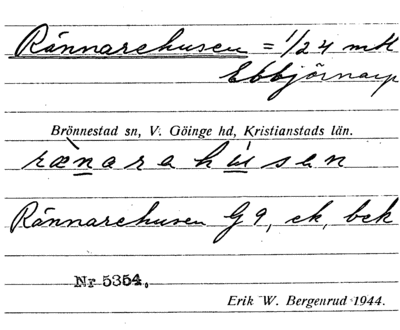 Rännarehusen = 1/24 mtl
Ebbjörnarp
Brönnestad sn, V. Göinge hd, Kristianstads län.
rænarahùsen
Rännarehusen G9, ek, bek
Nr 5354.
Erik W. Bergenrud 1944.